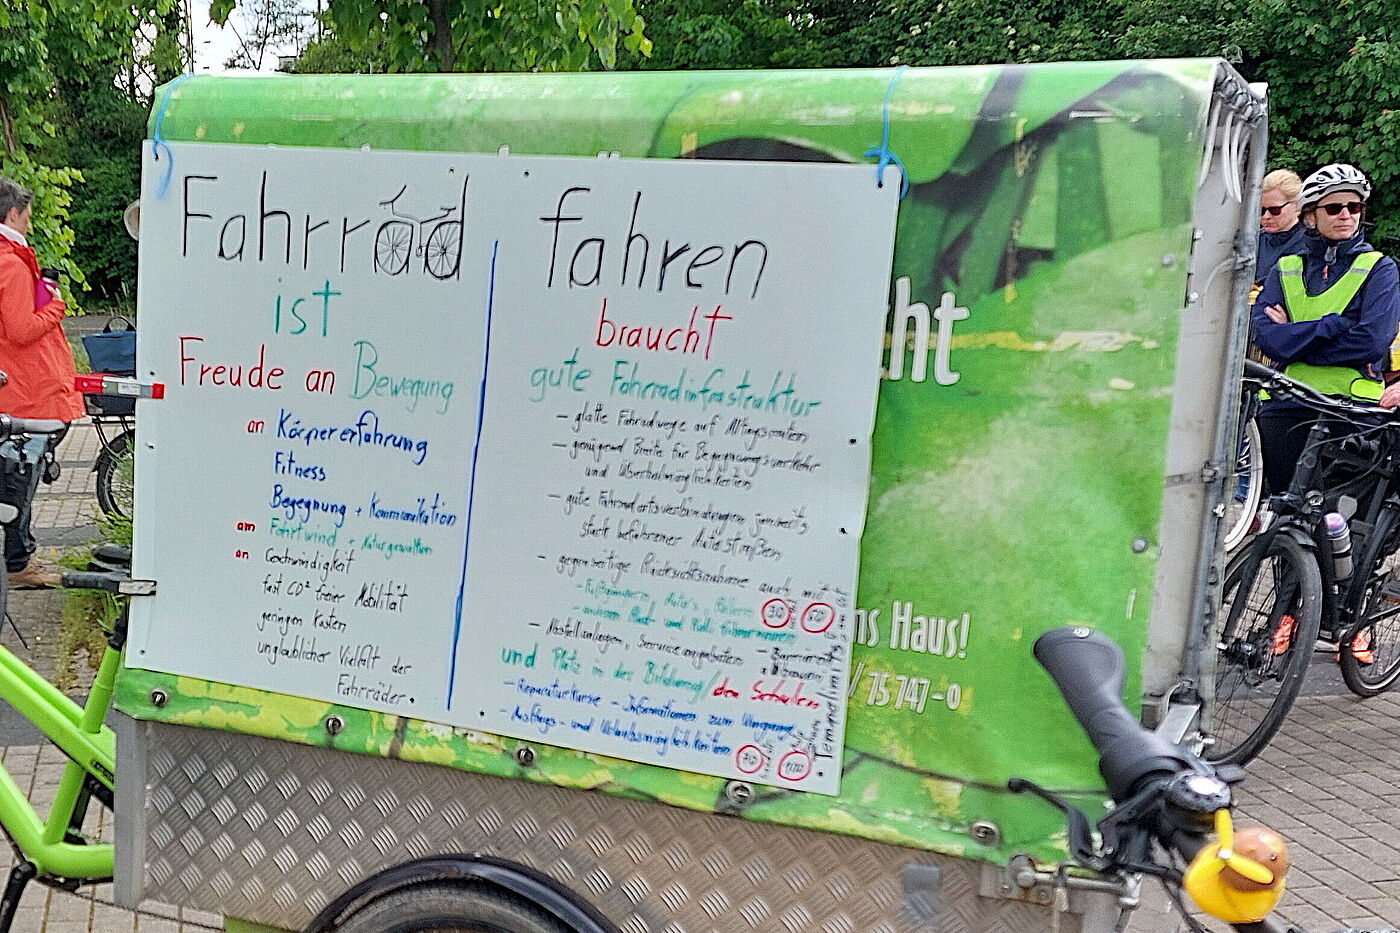 Fahrrad
ist
Freude an Bewegung
an Körpererfahrung
Fitness
Begegnung + Kommunikation
am Fahrtwind + Naturgewalten
an Geschwindigkeit
fast CO² freier Mobilität
geringen Kosten
unglaublicher Vielfalt der
Fahrräder.
fahren
braucht
gute Fahrradinfrastruktur
- glatte Fahrradwege auf Alltagsrouten
- genügend Breite für Begegnungsverkehr
und Überholmöglichkeiten
- gute Fahrradortsverbindungen jenseits
stark befahrener Autostraßen
- gegenseitige Rücksichtnahme auch mit
- Fußgängern, Auto's, Rollern
- anderen Rad- und
30
50
- Abstellanlagen, Serviceangeboten
- Barrieren
und Platz in der Bildung/den Schulen
- Reparaturkurse - Informationen zum Umgang
- Ausflugs- und Urlaubsmöglichkeiten
70
100
Tempolimits
cht
ns Haus!
/ 75 747-0